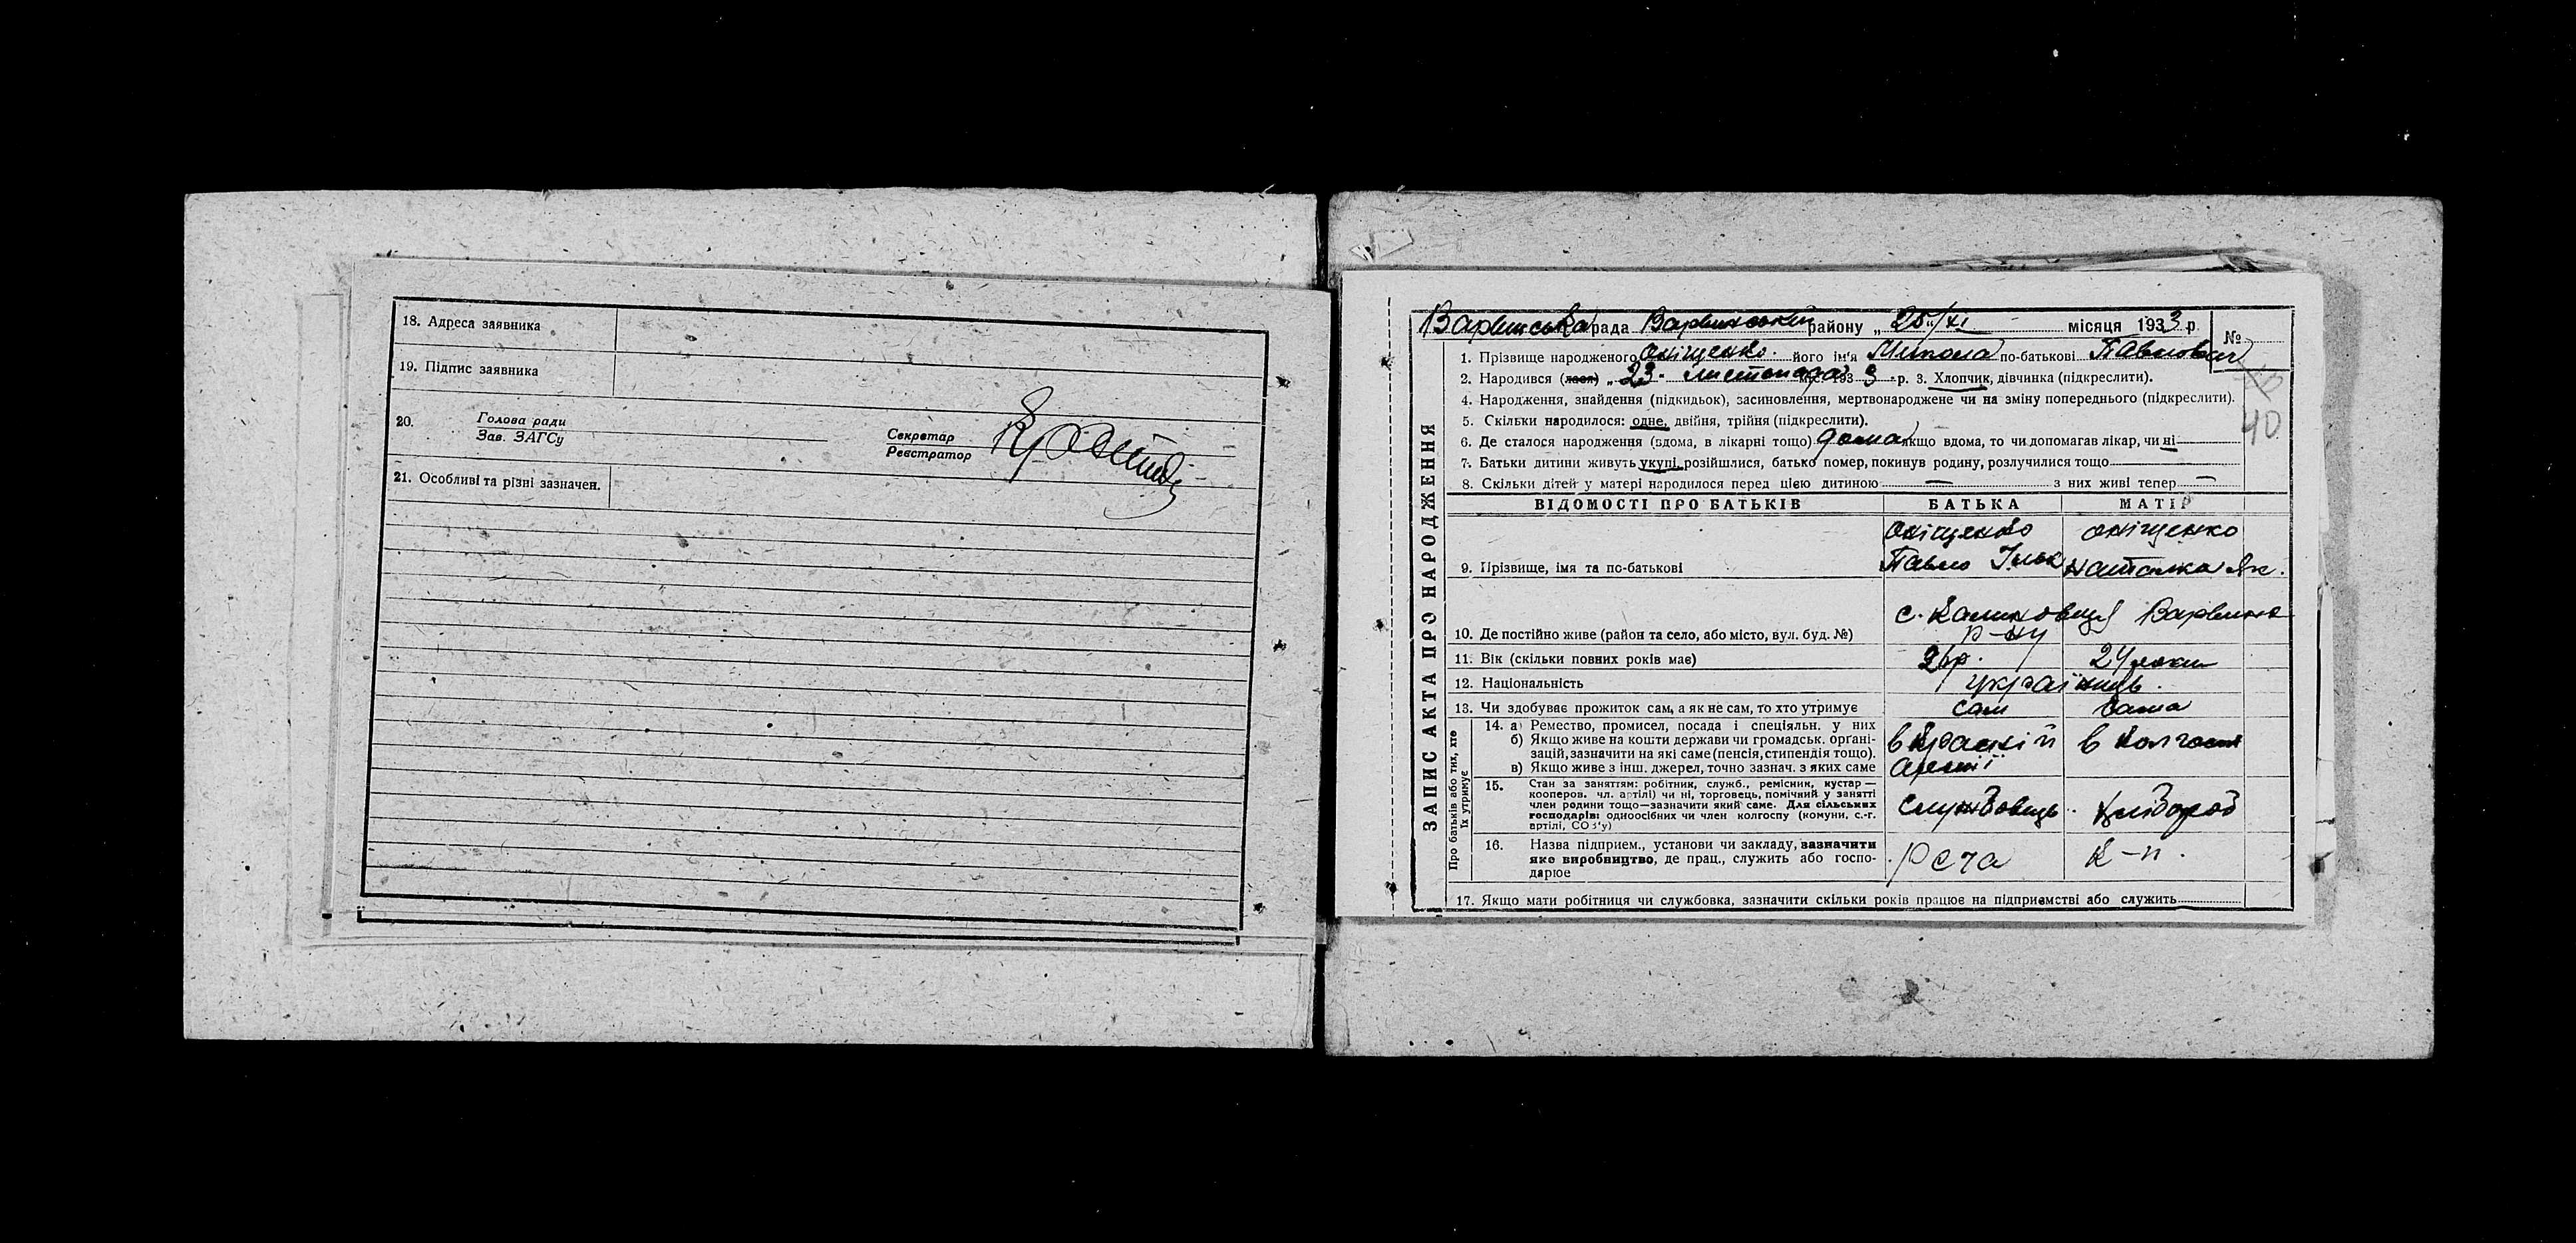 18. Адреса заявника
19. Підпис заявника
20. Голова ради
Зав. ЗАГСу
Секретар
Реєстратор
21. Особливі та різні зазначен.
ЗАПИС АКТА ПРО НАРОДЖЕННЯ
Варвинська рада Варвинський району „25"/XI місяця 1933 р.
№
1. Прізвище народженого Оніщенко його ім'я Микола по-батькові Павлович
2. Народився (лася) „23 листопада міс. 193 3 р. 3. Хлопчик, дівчинка (підкреслити).
40
4. Народження, знайдення (підкидьок), засиновлення, мертвонароджене чи на зміну попереднього (підкреслити).
5. Скільки народилося: одне, двійня, трійня (підкреслити).
6. Де сталося народження (вдома, в лікарні тощо) дома якщо вдома, то чи допомагав лікар, чи ні
7. Батьки дитини живуть укупі, розійшлися, батько помер, покинув родину, розлучилися тощо
8. Скільки дітей у матері народилося перед цією дитиною — з них живі тепер —
ВІДОМОСТІ ПРО БАТЬКІВ БАТЬКА МАТІР
9. Прізвище, імя та по-батькові
Оніщенко Павло Ільк
Оніщенко Наталка Як.
10. Де постійно живе (район та село, або місто, вул. буд. №)
с. Калиновиця Варвинс
р-ну
11. Вік (скільки повних років має) 26р. 24 роки
12. Національність українць.
13. Чи здобуває прожиток сам, а як не сам, то хто утримує сам сама
Про батьків або тих, хто їх утримує
14. а) Ремество, промисел, посада і спеціяльн. у них
б) Якщо живе на кошти держави чи громадськ. органі-
зацій, зазначити на які саме (пенсія, стипендія тощо).
в) Якщо живе з інш. джерел, точно зазнач. з яких саме
в Красній армії
в колгоспі
15. Стан за заняттям: робітник, служб., ремісник, кустар—
кооперов. чл. артілі) чи ні, торговець, помічний у занятті
член родини тощо—зазначити який саме. Для сільських
господарів: одноосібних чи член колгоспу (комуни, с.-г.
артілі, СОЗ'у)
службовець
хлібороб
16. Назва підприєм., установи чи закладу, зазначити
яке виробництво, де прац., служить або госпо-
дарює
рсча
к-п.
17. Якщо мати робітниця чи службовка, зазначити скільки років працює на підприємстві або служить